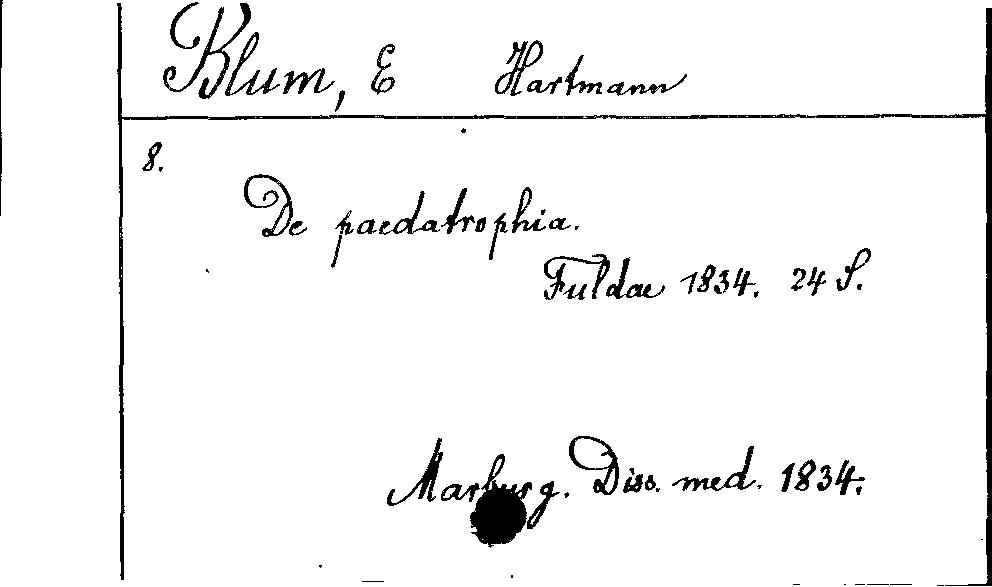 Blum, E Hartmann
8.
De paedatrophia.
Fuldae 1834. 24 S.
Marburg. Diss. med. 1834.